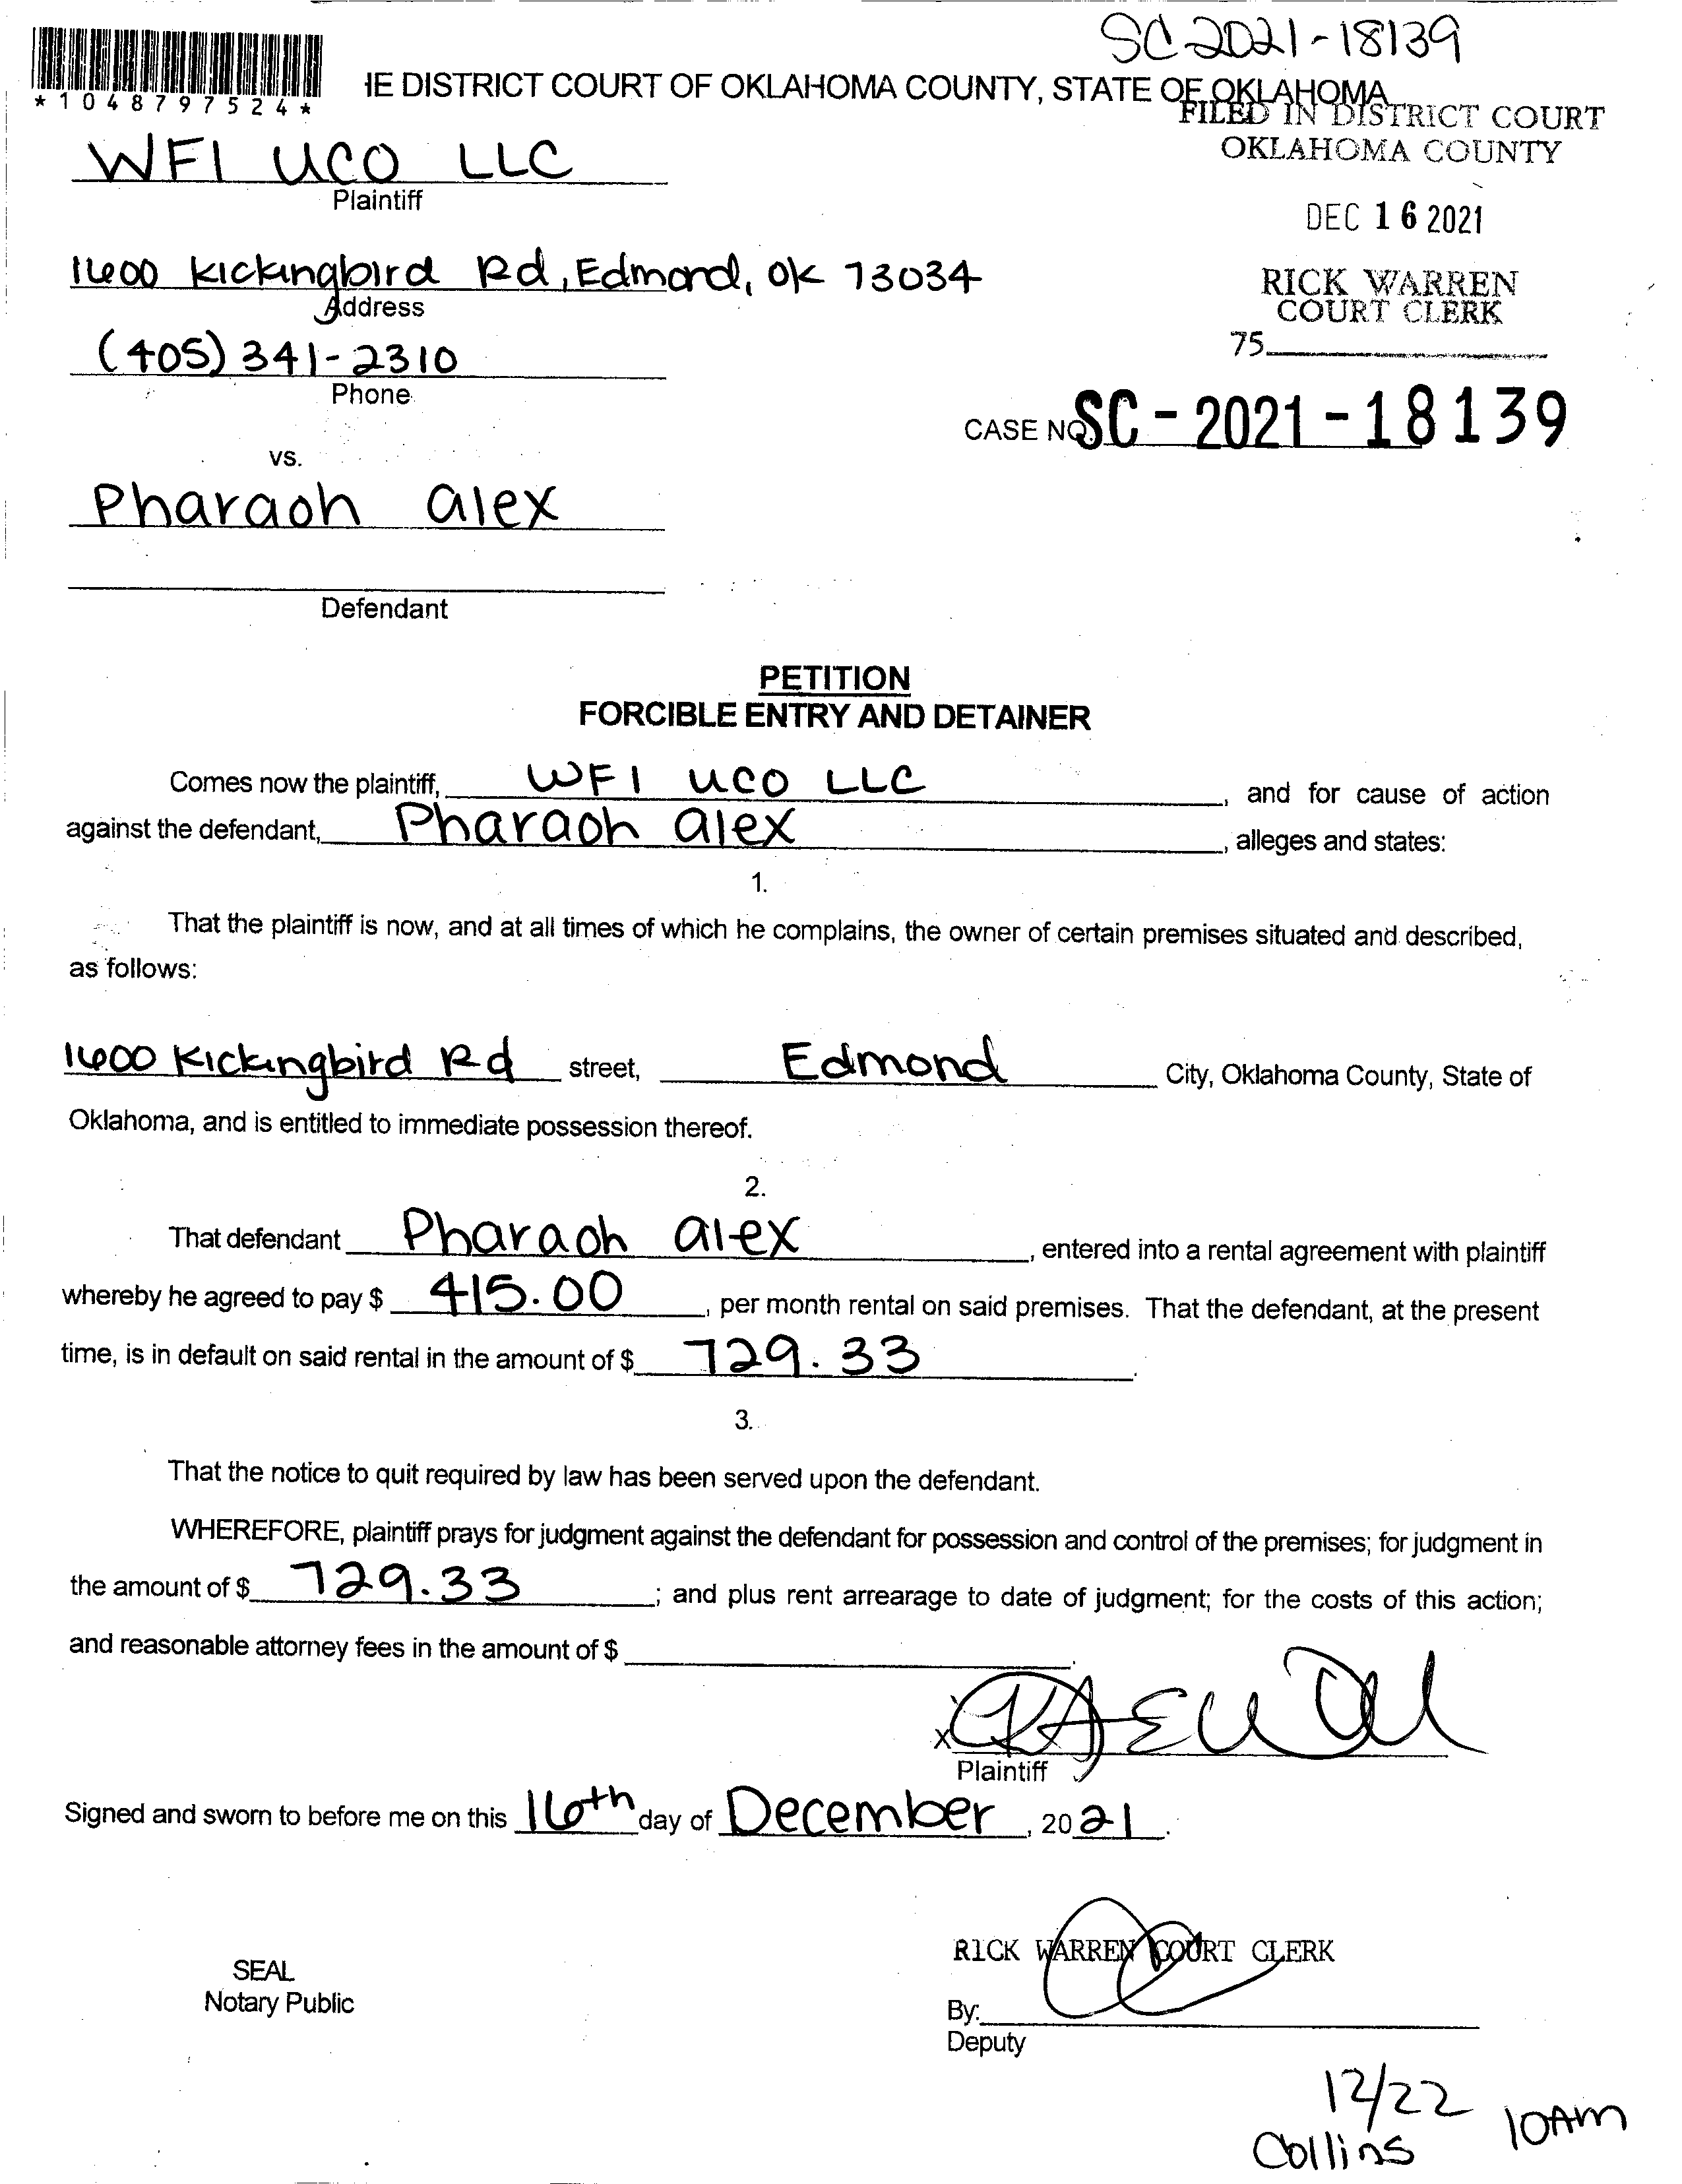 SC 2021-18139
*1048797524*
IE DISTRICT COURT OF OKLAHOMA COUNTY, STATE OF OKLAHOMA
FILED IN DISTRICT COURT
OKLAHOMA COUNTY
WFI UCO LLC
Plaintiff
DEC 16 2021
1600 Kickingbird Rd, Edmond, OK 73034
Address
RICK WARREN
COURT CLERK
75
(405) 341-2310
Phone
CASE NO. SC-2021-18139
vs.
Pharaoh alex
Defendant
PETITION
FORCIBLE ENTRY AND DETAINER
Comes now the plaintiff, WFI UCO LLC, and for cause of action
against the defendant, Pharaoh alex, alleges and states:
1.
That the plaintiff is now, and at all times of which he complains, the owner of certain premises situated and described,
as follows:
1600 Kickingbird Rd street, Edmond City, Oklahoma County, State of
Oklahoma, and is entitled to immediate possession thereof.
2.
That defendant Pharaoh alex, entered into a rental agreement with plaintiff
whereby he agreed to pay $ 415.00, per month rental on said premises. That the defendant, at the present
time, is in default on said rental in the amount of $ 729.33.
3.
That the notice to quit required by law has been served upon the defendant.
WHEREFORE, plaintiff prays for judgment against the defendant for possession and control of the premises; for judgment in
the amount of $ 729.33; and plus rent arrearage to date of judgment; for the costs of this action;
and reasonable attorney fees in the amount of $ .
X
Plaintiff
Signed and sworn to before me on this 16th day of December, 2021.
RICK WARREN COURT CLERK
SEAL
Notary Public
By:
Deputy
12/22 10AM
Collins